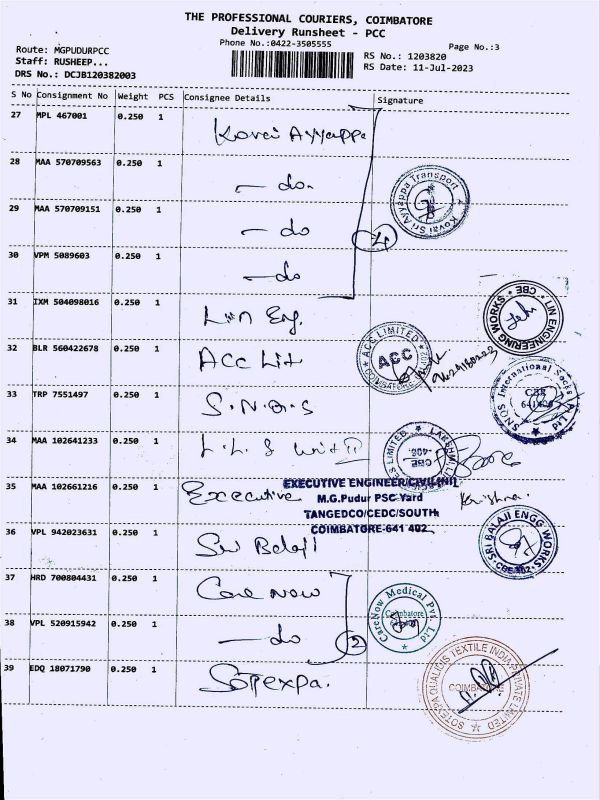 THE PROFESSIONAL COURIERS, COIMBATORE
Delivery Runsheet - PCC
Phone No.:0422-3505555
Page No.:3
Route: MGPUDURPCC
Staff: RUSHEEP...
DRS No.: DCJB120382003
RS No.: 1203820
RS Date: 11-Jul-2023
S No Consignment No Weight PCS Consignee Details Signature
27 MPL 467001 0.250 1 Kovai Ayyappa
28 MAA 570709563 0.250 1 — do.
Kovai Sri Ayyappa Transport
29 MAA 570709151 0.250 1 — do
4
30 VPM 5089603 0.250 1 — do
31 IXM 504098016 0.250 1 Lin Eng.
LIN ENGINEERING WORKS CBE
32 BLR 560422678 0.250 1 Acc Lit
ACC LIMITED ACC COIMBATORE
33 TRP 7551497 0.250 1 S.N.Q.S
SNQS International Socks Pvt Ltd CBE
34 MAA 102641233 0.250 1 L.L.S Unit II
LIMITED CBE
35 MAA 102661216 0.250 1 Executive
EXECUTIVE ENGINEER/CIVIL
M.G.Pudur PSC Yard
TANGEDCO/CEDC/SOUTH
COIMBATORE-641 402
Krishna.
36 VPL 942023631 0.250 1 Sri Balaji
SRI BALAJI ENGG WORKS
37 HRD 700804431 0.250 1 Care Now
CareNow Medical Pvt. Ltd Coimbatore
38 VPL 520915942 0.250 1 — do
2
39 EDQ 18071790 0.250 1 Sotexpa.
SOTEXPA QUALIDIS TEXTILE INDIA PRIVATE LIMITED COIMBATORE